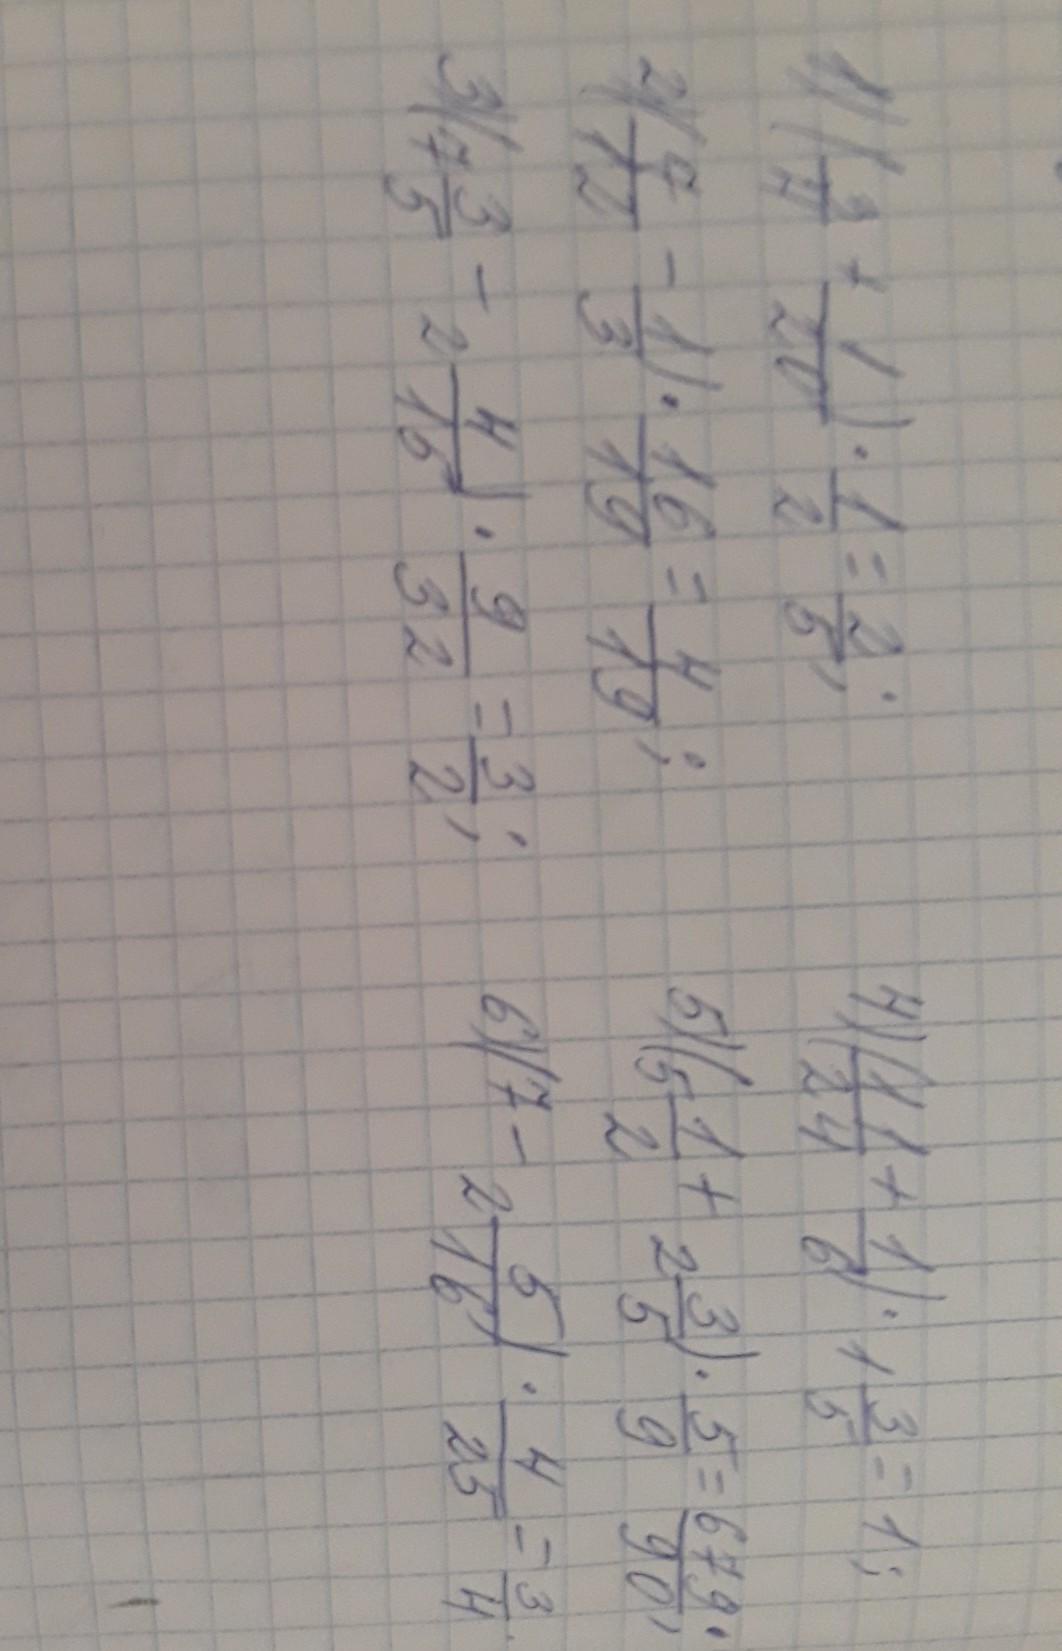 1) (3/4 + 1/20) · 1/2 = 2/5;
2) (7/12 - 1/3) · 16/19 = 4/19;
3) (7 3/5 - 2 4/15) · 9/32 = 3/2;
4) (11/24 + 1/6) · 1 3/5 = 1;
5) (5 1/2 + 2 3/5) · 5/9 = 679/90;
6) (7 - 2 5/16) · 4/25 = 3/4.